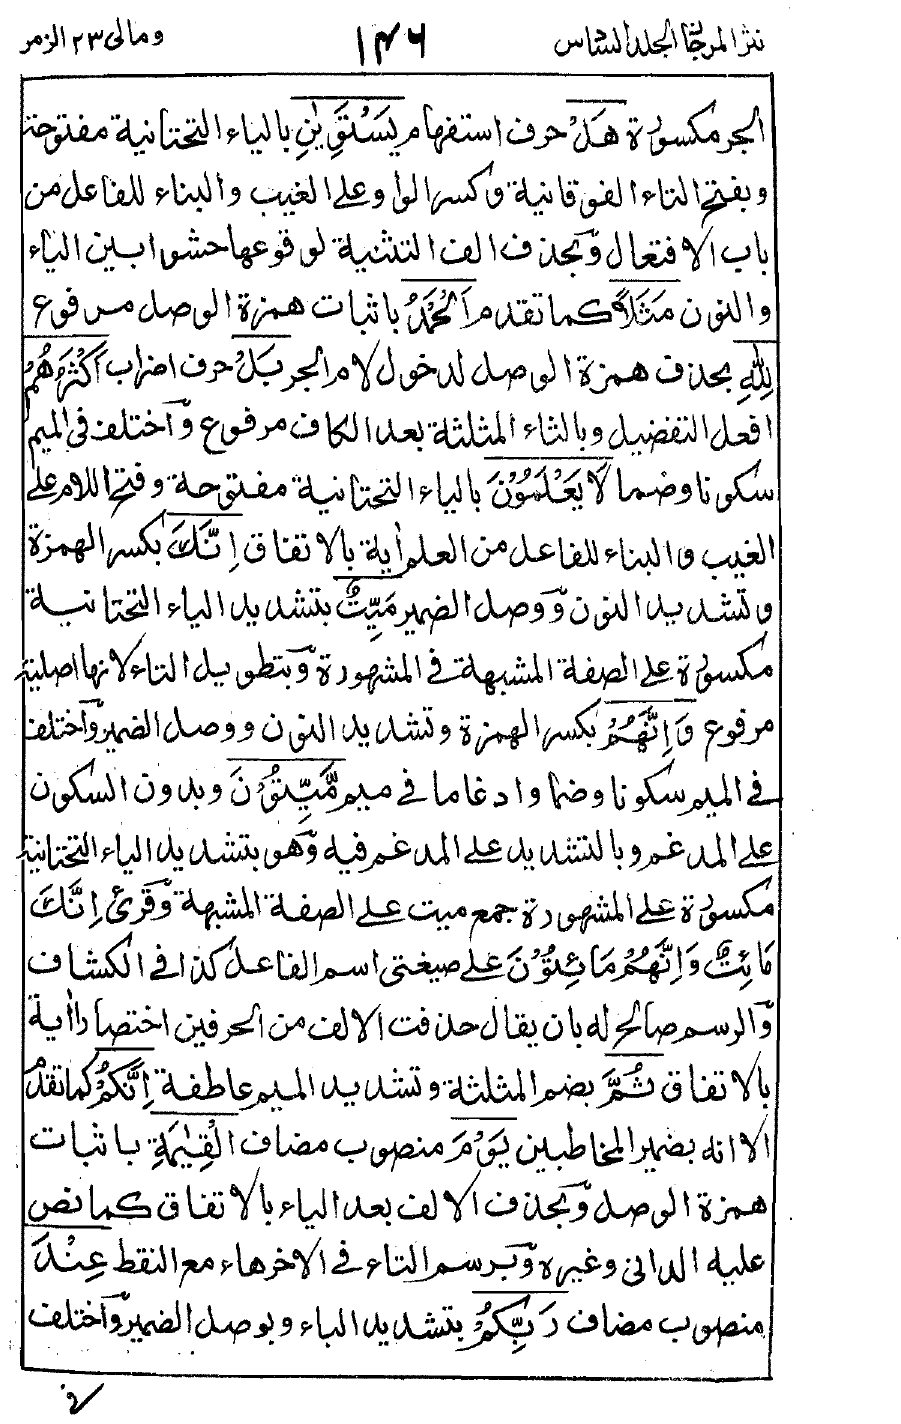 نثر المرجان الجلد السادس ١٤٦ ومالى ٢٣ الزمر
الجر مكسورة هَلْ حرف استفهام يَسْتَوِيٰنِ بالياء التحتانية مفتوحة
وبفتح التاء الفوقانية وكسر الواو على الغيب والبناء للفاعل من
باب الافتعال وبحذف الف التثنية لوقوعها حشوا بين الياء
والنون مَثَلًا كما تقدم اَلْحَمْدُ باثبات همزة الوصل مرفوع
لِلّٰهِ بحذف همزة الوصل لدخول لام الجر بَلْ حرف اضراب اَكْثَرُهُمْ
افعل التفضيل وبالثاء المثلثة بعد الكاف مرفوع واختلف فى الميم
سكونا وضما لَا يَعْلَمُوْنَ بالياء التحتانية مفتوحة وفتح اللام على
الغيب والبناء للفاعل من العلم اٰية بالاتفاق اِنَّكَ بكسر الهمزة
وتشديد النون ووصل الضمير مَيِّتٌ بتشديد الياء التحتانية
مكسورة على الصفة المشبهة فى المشهورة وبتطويل التاء لانها اصلية
مرفوع وَاِنَّهُمْ بكسر الهمزة وتشديد النون ووصل الضمير واختلف
فى الميم سكونا وضما وادغاما فى ميم مَّيِّتُوْنَ وبدون السكون
على المدغم وبالتشديد على المدغم فيه وهو بتشديد الياء التحتانية
مكسورة على المشهورة جمع ميت على الصفة المشبهة وقرئ اِنَّكَ
مَائِتٌ وَاِنَّهُمْ مَائِتُوْنَ على صيغتى اسم الفاعل كذا فى الكشاف
والرسم صالح له بان يقال حذفت الالف من الحرفين اختصارا اٰية
بالاتفاق ثُمَّ بضم المثلثة وتشديد الميم عاطفة اِنَّكُمْ كما تقدم
الا انه بضمير المخاطبين يَوْمَ منصوب مضاف الْقِيٰمَةِ باثبات
همزة الوصل وبحذف الالف بعد الياء بالاتفاق كما نص
عليه الدانى وغيره وبرسم التاء فى الاخر هاء مع النقط عِنْدَ
منصوب مضاف رَبِّكُمْ بتشديد الباء وبوصل الضمير واختلف
فى